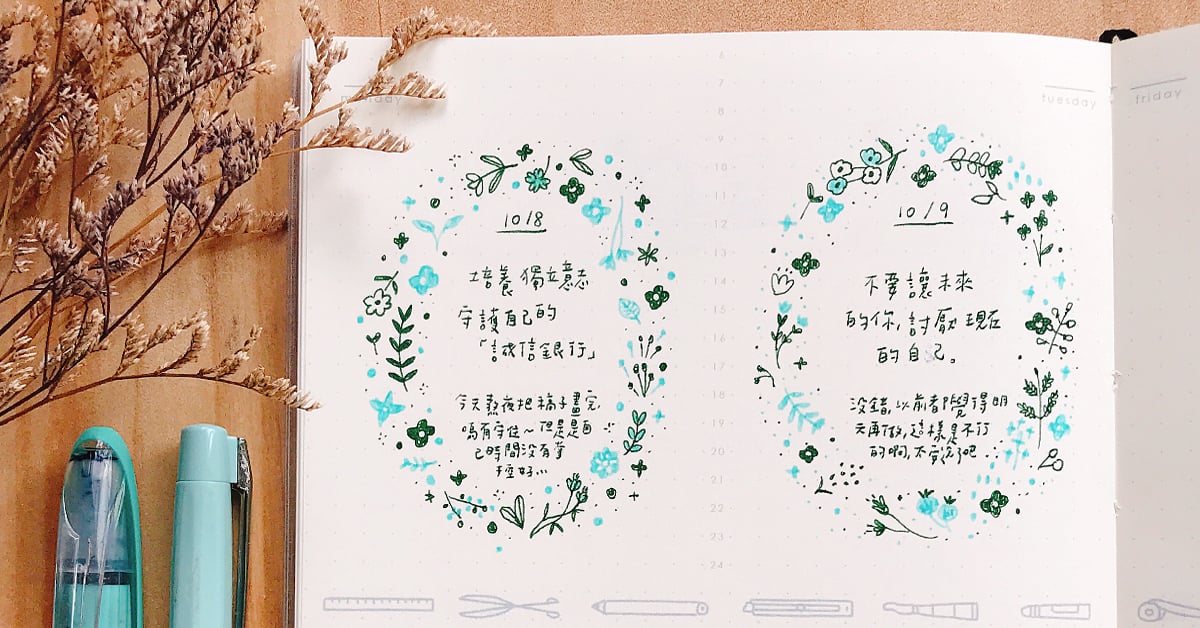 monday
tuesday
friday
6
7
8
9
10
11
12
13
14
15
16
17
18
19
20
21
22
23
24
10/8
培養獨立意志
守護自己的
「誠信銀行」
今天熬夜把稿子畫完,
嗚有守住~但是是自
己時間沒有掌
控好...
10/9
不要讓未來
的你,討厭現在
的自己。
沒錯,以前都覺得明
天再做,這樣是不行
的啊,不要說了吧...